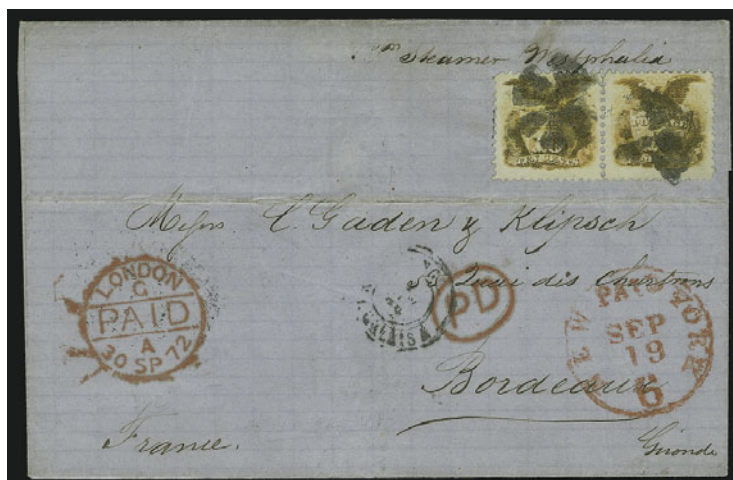 Steamer Westphalia
TEN CENTS
Messrs C. Gaden y Klipsch
Quai des Chartrons
Bordeaux
Gironde
France.
LONDON
G
PAID
A
30 SP 72
CALAIS
PD
NEW YORK
PAID
SEP
19
6